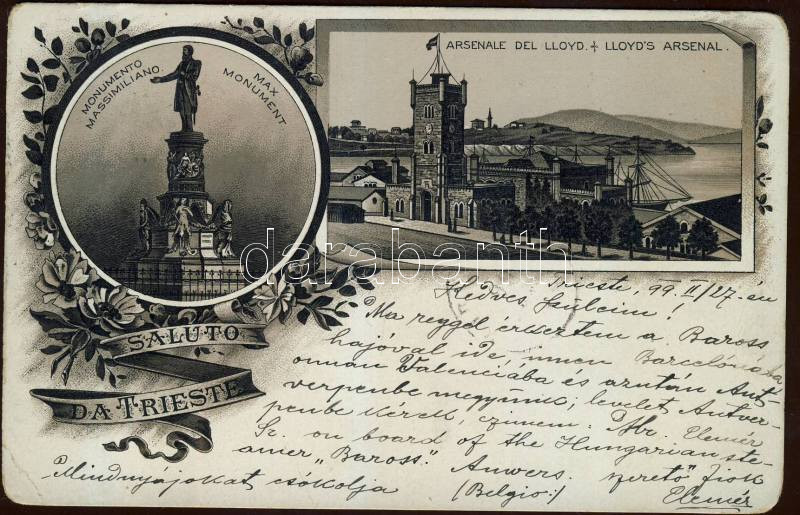 MONUMENTO
MASSIMILIANO.
MAX
MONUMENT
ARSENALE DEL LLOYD. LLOYD'S ARSENAL.
darabanth
SALUTO
DA TRIESTE
Trieste, 99 II/27-én
Kedves Szüleim!
Ma reggel érkeztem a Baross
hajóval ide, innen Barcelónába
onnan Valenciába és azután Ant
verpenbe megyünk, levelet Antver-
penbe kérek, czimem: Mr. Elemér
Sz. on board of the Hungarian ste-
amer „Baross". Anvers.
(Belgio:)
szerető fiok
Elemér
Mindnyájokat csókolja